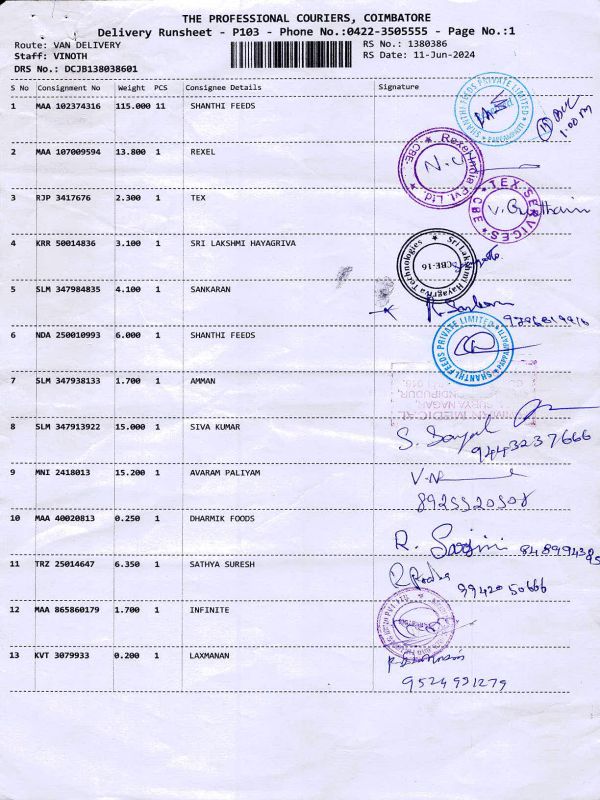 THE PROFESSIONAL COURIERS, COIMBATORE
Delivery Runsheet - P103 - Phone No.:0422-3505555 - Page No.:1
Route: VAN DELIVERY RS No.: 1380386
Staff: VINOTH RS Date: 11-Jun-2024
DRS No.: DCJB138038601
S No Consignment No Weight PCS Consignee Details Signature
1 MAA 102374316 115.000 11 SHANTHI FEEDS
SHANTHI FEEDS PRIVATE LIMITED
1:00 PM
2 MAA 107009594 13.800 1 REXEL
N.C
3 RJP 3417676 2.300 1 TEX
TEX-SERVICES
CBE
4 KRR 50014836 3.100 1 SRI LAKSHMI HAYAGRIVA
Sri Lakshmi Hayagriva Technologies
CBE-16
5 SLM 347984835 4.100 1 SANKARAN
6 NDA 250010993 6.000 1 SHANTHI FEEDS
SHANTHI FEEDS PRIVATE LIMITED
7 SLM 347938133 1.700 1 AMMAN
8 SLM 347913922 15.000 1 SIVA KUMAR
9443237666
9 MNI 2418013 15.200 1 AVARAM PALIYAM
8925520508
10 MAA 40020813 0.250 1 DHARMIK FOODS
11 TRZ 25014647 6.350 1 SATHYA SURESH
9942050666
12 MAA 865860179 1.700 1 INFINITE
13 KVT 3079933 0.200 1 LAXMANAN
9524931279